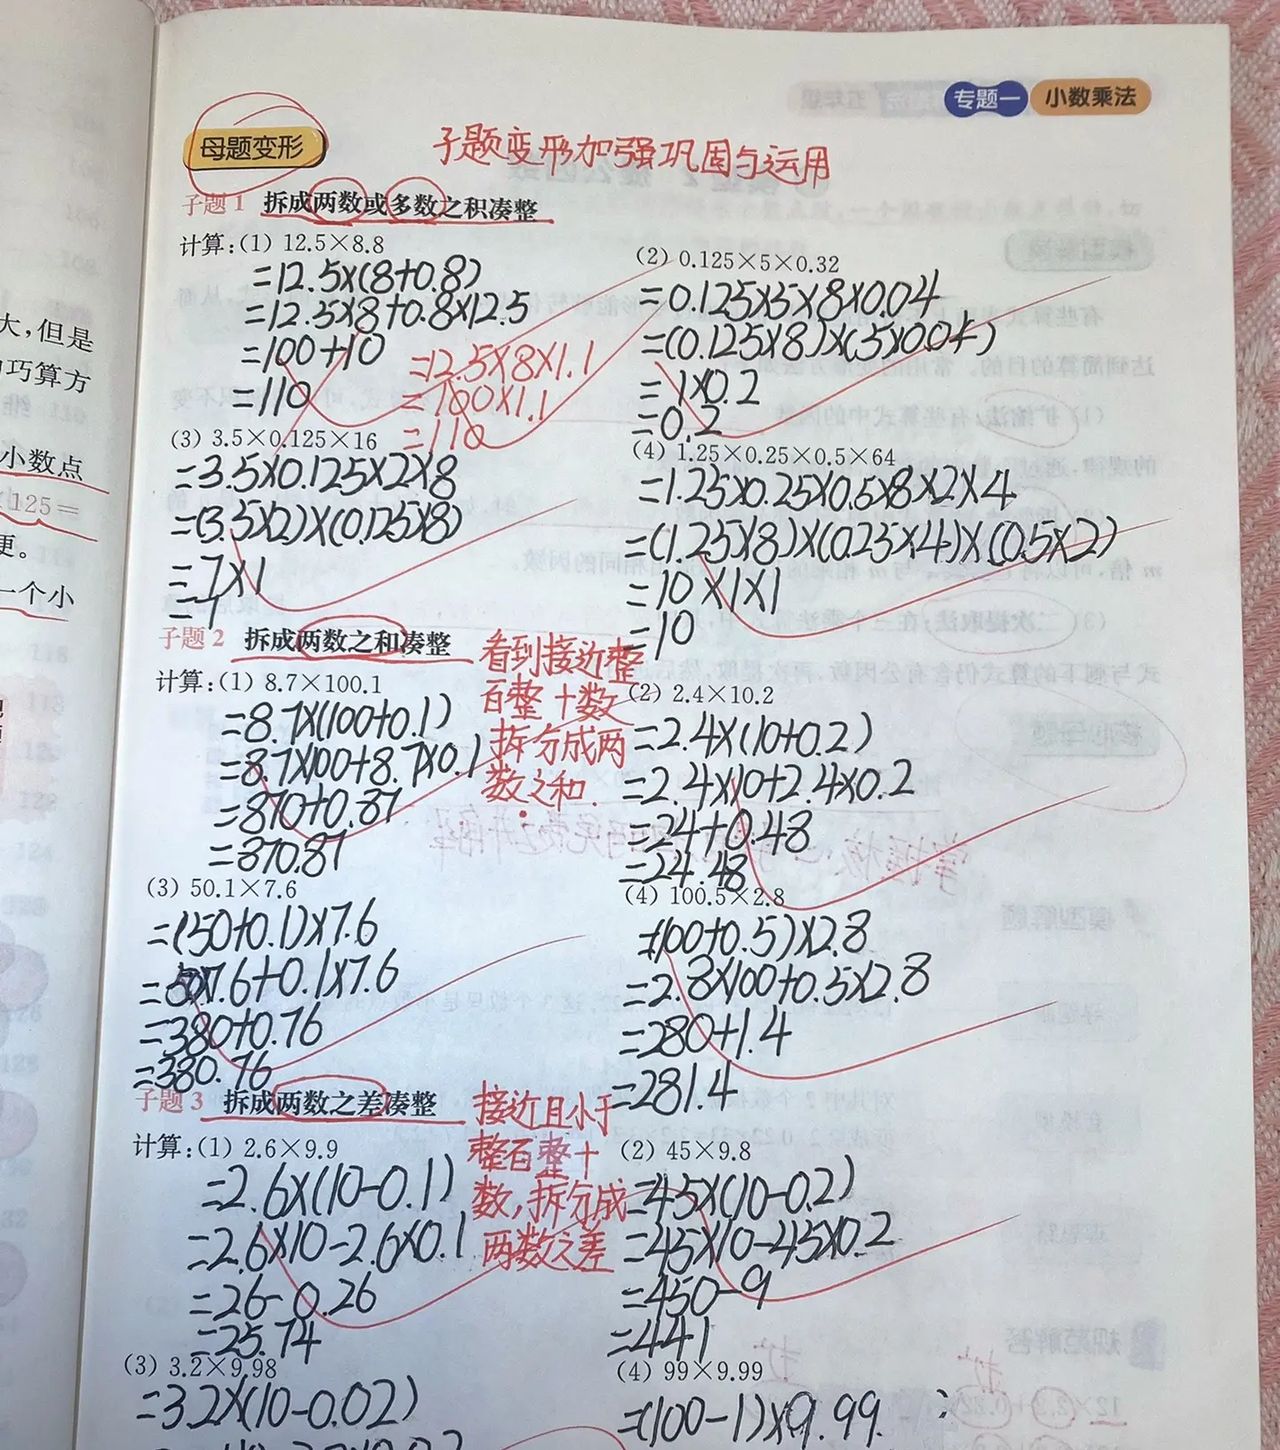 专题一 小数乘法
母题变形
子题变形加强巩固与运用
子题1 拆成两数或多数之积凑整
计算:(1) 12.5×8.8
=12.5×(8+0.8)
=12.5×8+0.8×12.5
=100+10
=110
=12.5×8×1.1
=100×1.1
=110
(2) 0.125×5×0.32
=0.125×5×8×0.04
=(0.125×8)×(5×0.04)
=1×0.2
=0.2
(3) 3.5×0.125×16
=3.5×0.125×2×8
=(3.5×2)×(0.125×8)
=7×1
=7
(4) 1.25×0.25×0.5×64
=1.25×0.25×0.5×8×2×4
=(1.25×8)×(0.25×4)×(0.5×2)
=10×1×1
=10
子题2 拆成两数之和凑整
看到接近整
百整十数
拆分成两
数之和.
计算:(1) 8.7×100.1
=8.7×(100+0.1)
=8.7×100+8.7×0.1
=870+0.87
=870.87
(2) 2.4×10.2
=2.4×(10+0.2)
=2.4×10+2.4×0.2
=24+0.48
=24.48
(3) 50.1×7.6
=(50+0.1)×7.6
=50×7.6+0.1×7.6
=380+0.76
=380.76
(4) 100.5×2.8
=(100+0.5)×2.8
=2.8×100+0.5×2.8
=280+1.4
=281.4
子题3 拆成两数之差凑整
接近且小于
整百整十
数,拆分成
两数之差
计算:(1) 2.6×9.9
=2.6×(10-0.1)
=2.6×10-2.6×0.1
=26-0.26
=25.74
(2) 45×9.8
=45×(10-0.2)
=45×10-45×0.2
=450-9
=441
(3) 3.2×9.98
=3.2×(10-0.02)
(4) 99×9.99
=(100-1)×9.99
大,但是
巧算方
小数点
125=
便。
一个小